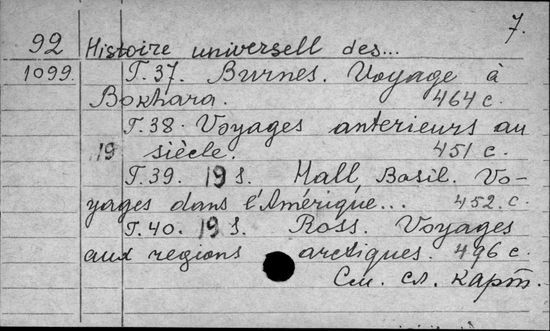 7.
92 Histoire universell des...
1099. Т.37. Burnes. Voyage à
Bokhara. 464 с.
Т.38. Voyages anterieurs au
19 siècle. 451 с.
Т.39. 19 s. Hall Basil. Vo-
yages dans l'Amérique... 452. с.
Т.40. 19 s. Ross. Voyages
aux regions arctiques. 496 с.
См. сл. карт.